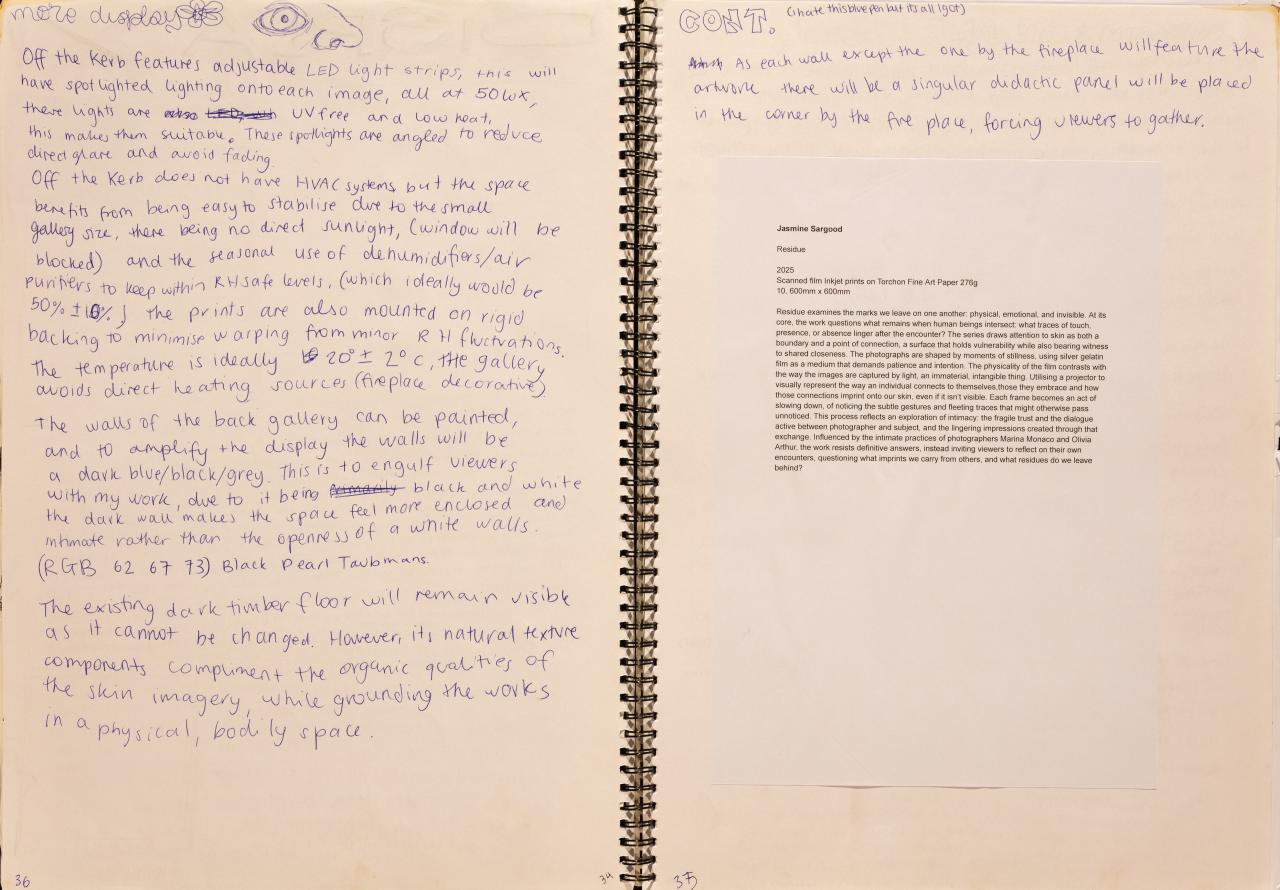 more display
Off the Kerb features adjustable LED light strips, this will
have spotlighted lighting onto each image, all at 50lux,
these lights are UV free and low heat,
this makes them suitable. These spotlights are angled to reduce
direct glare and avoid fading.
Off the Kerb does not have HVAC systems, but the space
benefits from being easy to stabilise due to the small
gallery size, there being no direct sunlight, (window will be
blocked) and the seasonal use of dehumidifiers/air
purifiers to keep within RH safe levels, (which ideally would be
50% ± 10%) the prints are also mounted on rigid
backing to minimise warping from minor RH fluctuations.
The temperature is ideally 20° ± 2°c, the gallery
avoids direct heating sources (fireplace decorative).
The walls of the back gallery can be painted,
and to amplify the display the walls will be
a dark blue/black/grey. This is to engulf viewers
with my work, due to it being black and white
the dark wall makes the space feel more enclosed and
intimate rather than the openness of a white walls.
(RGB 62 67 73) Black Pearl Taubmans.
The existing dark timber floor will remain visible
as it cannot be changed. However, its natural texture
components compliment the organic qualities of
the skin imagery, while grounding the works
in a physical, bodily space.
36
34
CONT. (i hate this blue pen but its all i got)
As each wall except the one by the fireplace will feature the
artwork there will be a singular didactic panel will be placed
in the corner by the fire place, forcing viewers to gather.
Jasmine Sargood
Residue
2025
Scanned film Inkjet prints on Torchon Fine Art Paper 276g
10, 600mm x 600mm
Residue examines the marks we leave on one another: physical, emotional, and invisible. At its
core, the work questions what remains when human beings intersect: what traces of touch,
presence, or absence linger after the encounter? The series draws attention to skin as both a
boundary and a point of connection, a surface that holds vulnerability while also bearing witness
to shared closeness. The photographs are shaped by moments of stillness, using silver gelatin
film as a medium that demands patience and intention. The physicality of the film contrasts with
the way the images are captured by light, an immaterial, intangible thing. Utilising a projector to
visually represent the way an individual connects to themselves,those they embrace and how
those connections imprint onto our skin, even if it isn't visible. Each frame becomes an act of
slowing down, of noticing the subtle gestures and fleeting traces that might otherwise pass
unnoticed. This process reflects an exploration of intimacy: the fragile trust and the dialogue
active between photographer and subject, and the lingering impressions created through that
exchange. Influenced by the intimate practices of photographers Marina Monaco and Olivia
Arthur, the work resists definitive answers, instead inviting viewers to reflect on their own
encounters, questioning what imprints we carry from others, and what residues do we leave
behind?